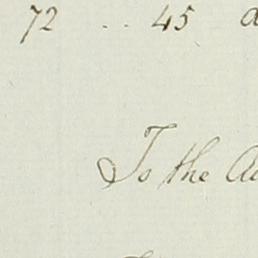 72 .. 45
To the